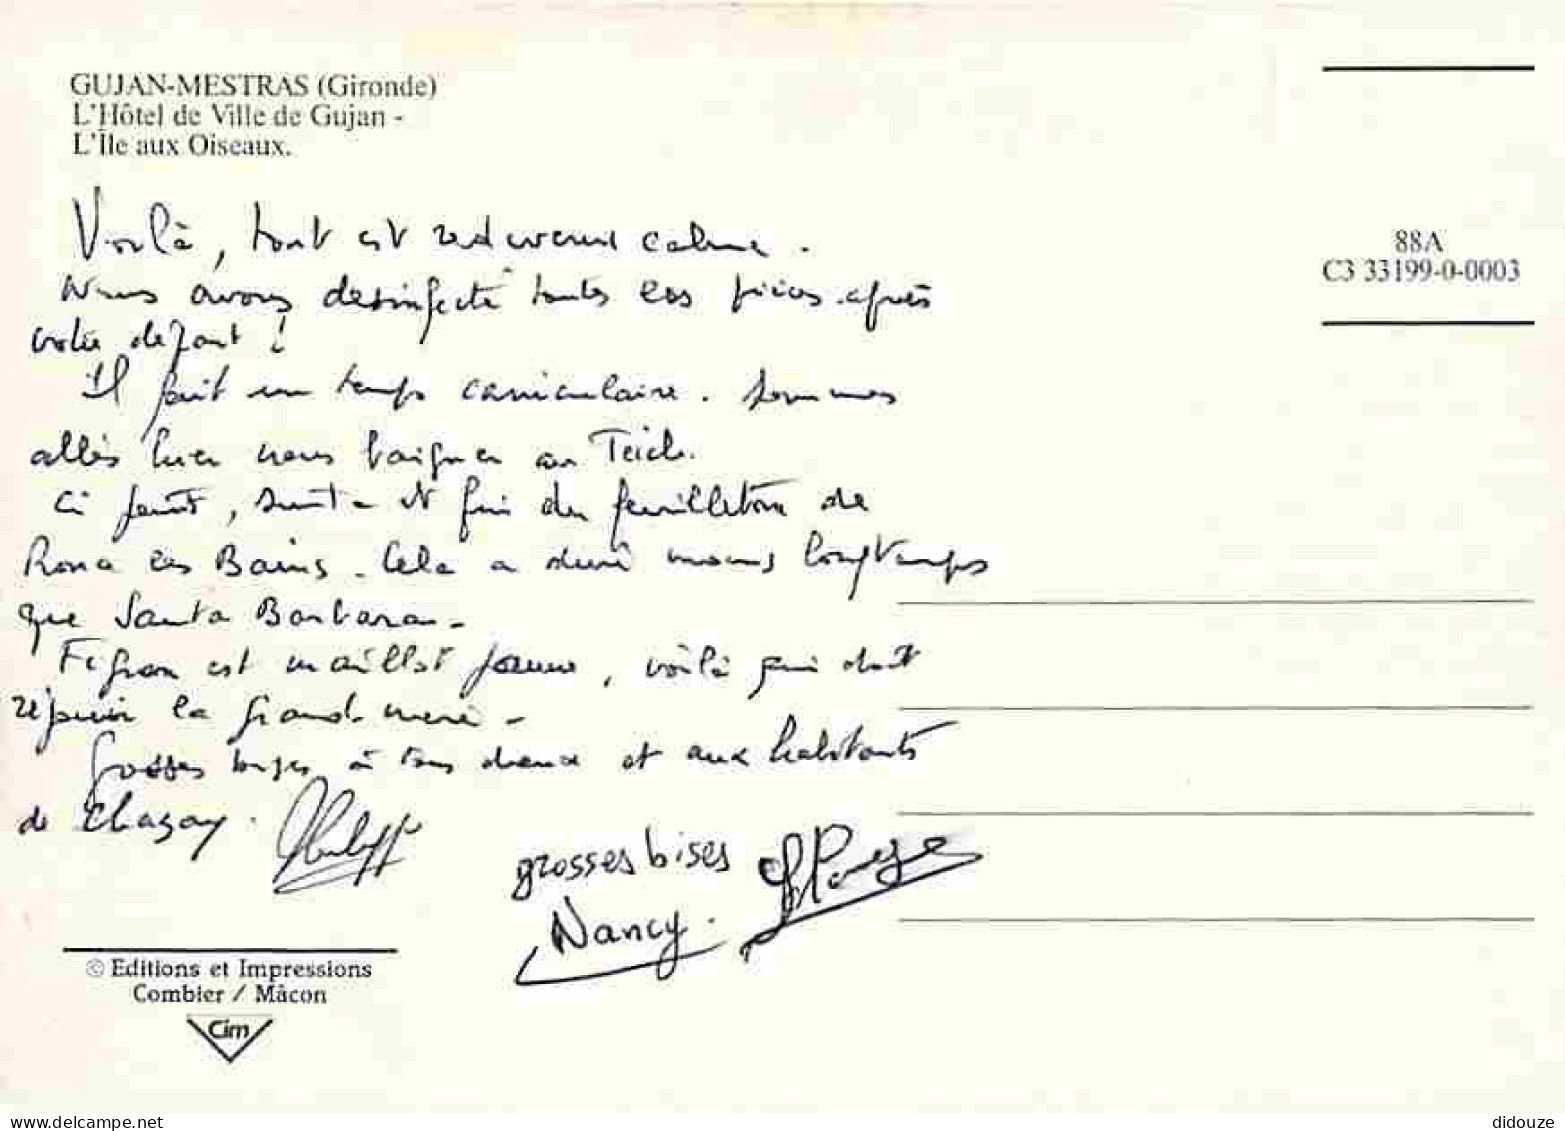 GUJAN-MESTRAS (Gironde)
L'Hôtel de Ville de Gujan -
L'Ile aux Oiseaux.
88A
C3 33199-0-0003
Voilà, tout est redevenu calme.
Nous avons desinfecté toutes les pièces après
votre départ !
Il fait un temps caniculaire. Sommes
allés hier nous baigner au Teich.
Ci joint, suite et fin du feuilleton de
Rona les Bains. Cela a duré moins longtemps
que Santa Barbara.
Fignon est maillot jaune, voilà qui doit
réjouir la grand mère -
Grosses bises à tous deux et aux habitants
de Chazay.
grosses bises
Nancy.
© Editions et Impressions
Combier / Mâcon
Cim
delcampe.net
didouze